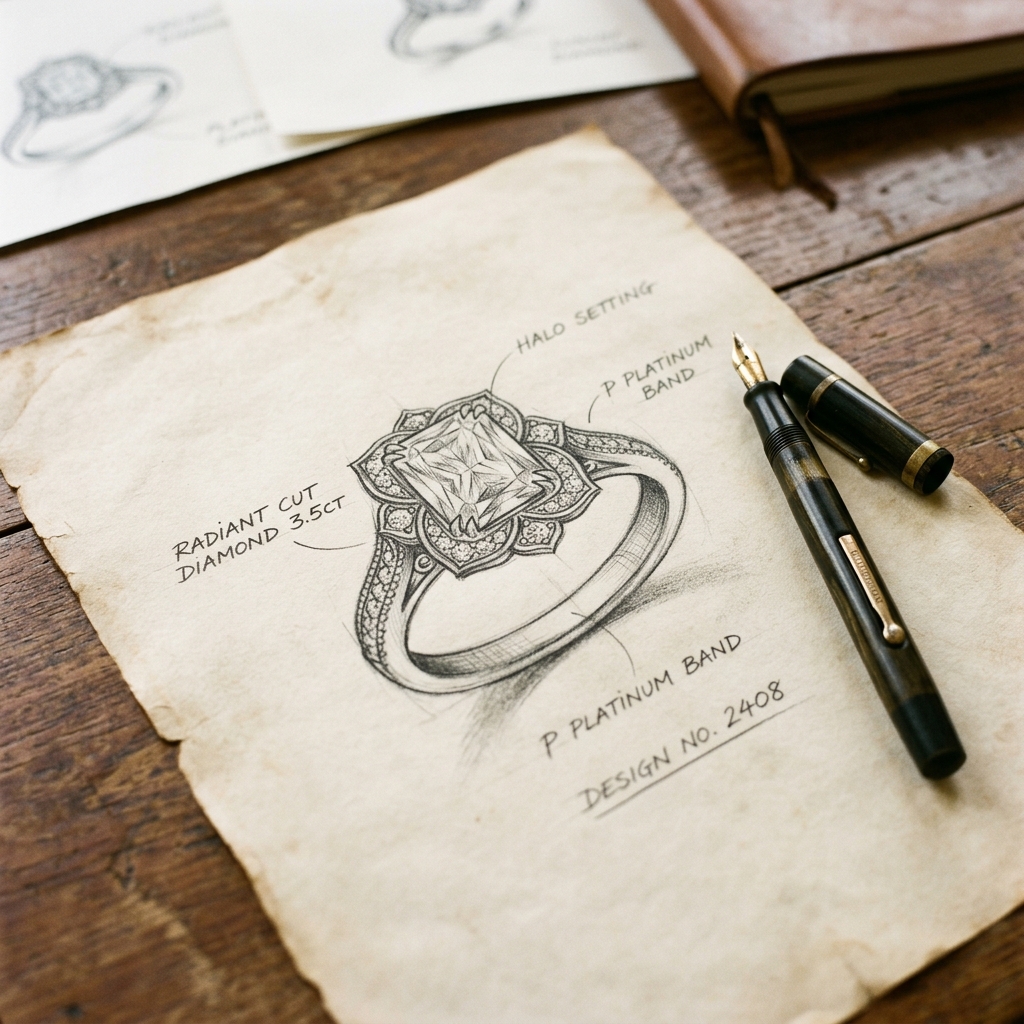 HALO SETTING
P PLATINUM
BAND
RADIANT CUT
DIAMOND 3.5CT
P PLATINUM BAND
DESIGN NO. 2408